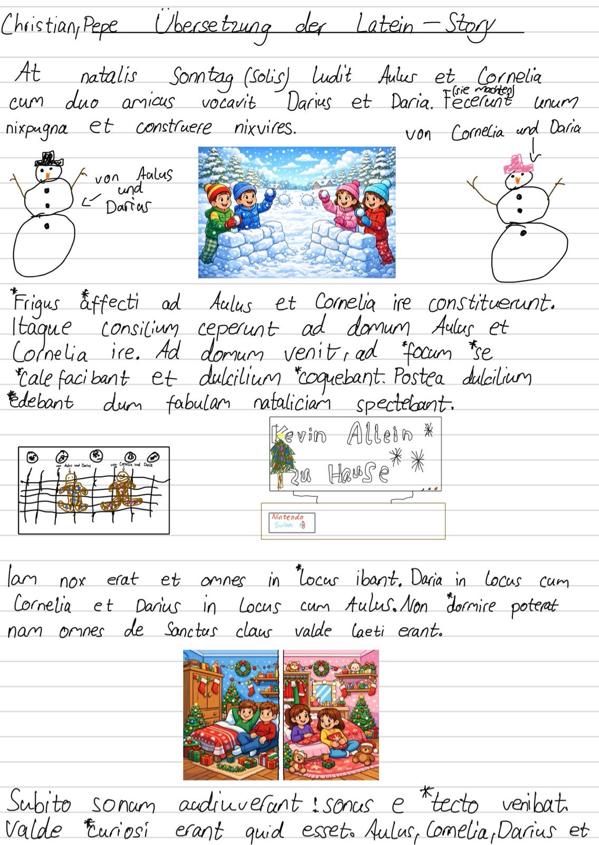 Christian, Pepe Übersetzung der Latein - Story
At natalis Sonntag (solis) ludit Aulus et Cornelia
cum duo amicus vocavit Darius et Daria. Fecerunt (sie machten) unum
nixpugna et construere nixvires.
von Cornelia und Daria
von Aulus
und
Darius
*Frigus *affecti ad Aulus et Cornelia ire constituerunt.
Itaque consilium ceperunt ad domum Aulus et
Cornelia ire. Ad domum venit, ad *focum *se
*calefacibant et dulcilium *coquebant. Postea dulcilium
*edebant dum fabulam nataliciam spectebant.
Kevin Allein *
zu Hause * *
von Aulus und Darius
von Cornelia und Daria
Nintendo
Switch
Iam nox erat et omnes in *locus ibant. Daria in locus cum
Cornelia et Darius in locus cum Aulus. Non *dormire poterat
nam omnes de Sanctus claus valde laeti erant.
Subito sonum audiuverant! sonus e *tecto venibat.
Valde *curiosi erant quid esset. Aulus, Cornelia, Darius et